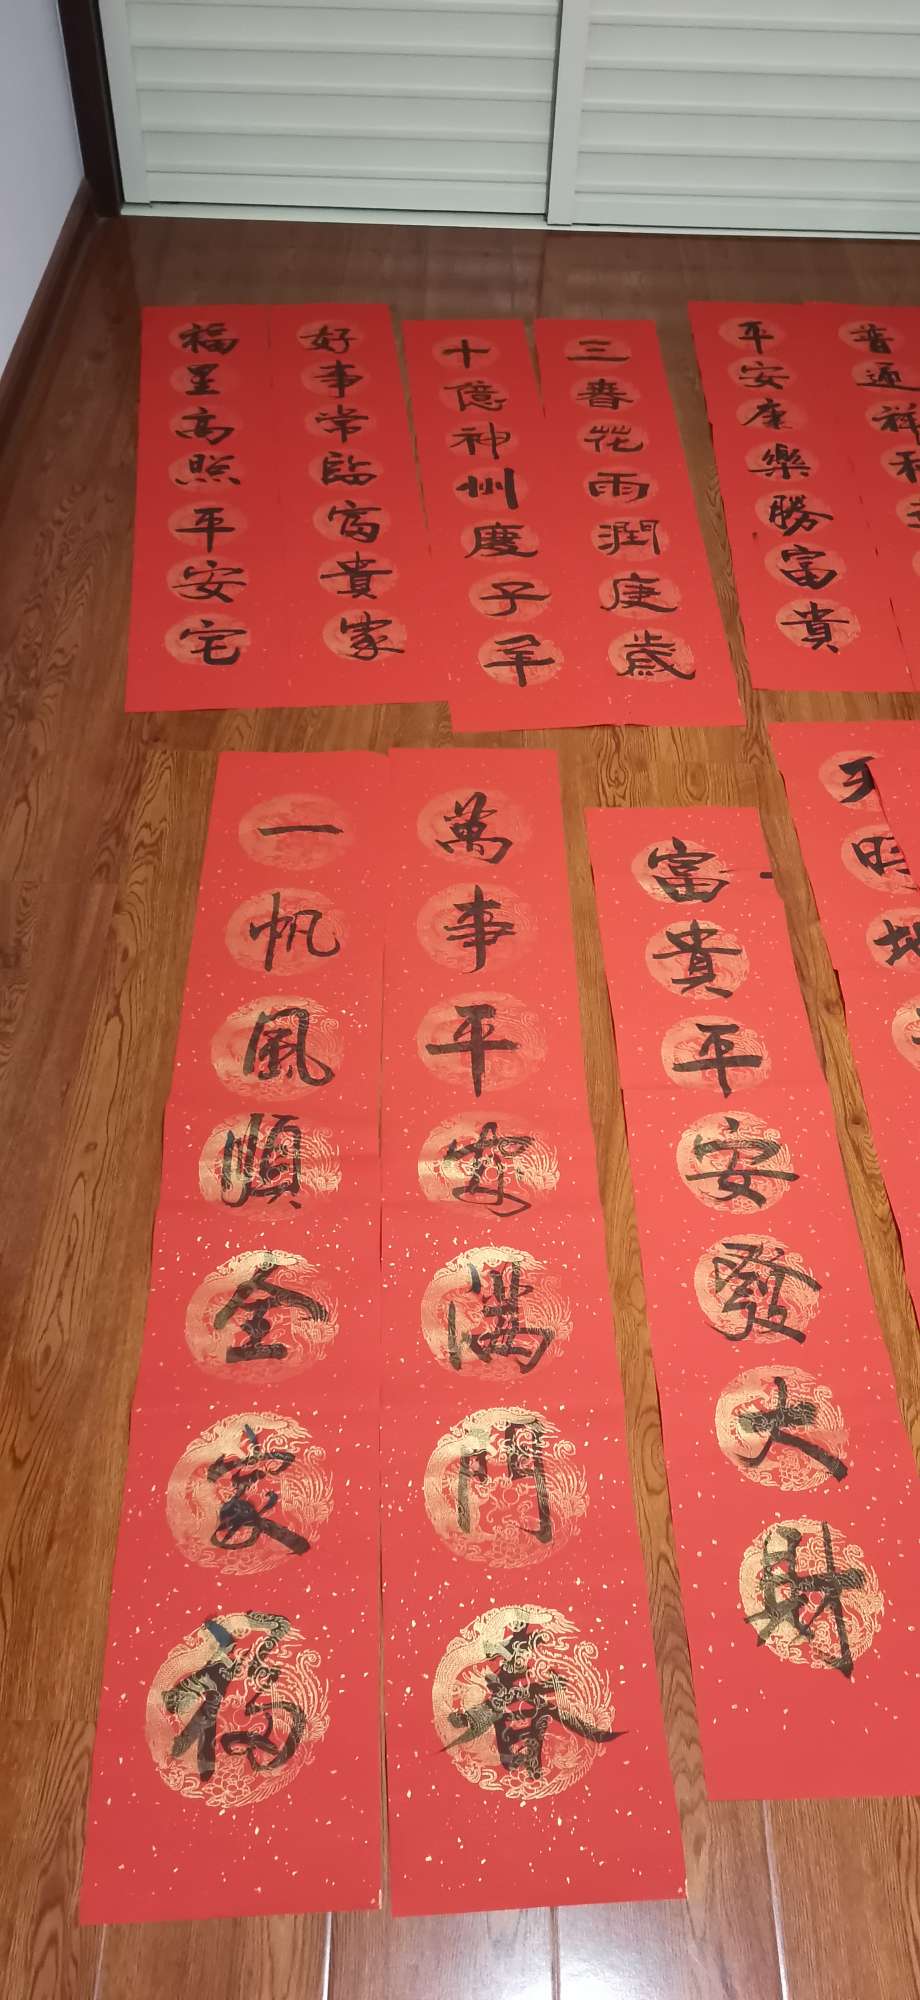 福星高照平安宅
好事常臨富貴家
十億神州慶子年
三春花雨潤庚歲
平安康樂勝富貴
普通祥和
一帆風順全家福
萬事平安滿門春
富貴平安發大財
天時地